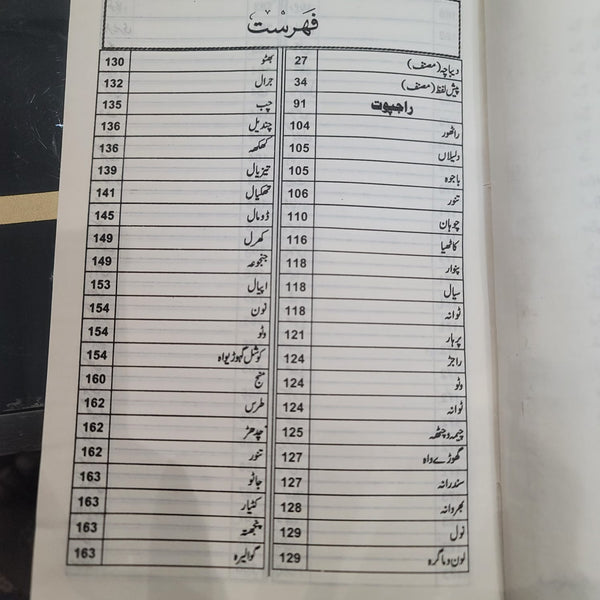 فہرست
دیباچہ (مصنف) 27
پیش لفظ (مصنف) 34
راجپوت 91
راٹھور 104
دلیلاں 105
باجوہ 105
تنور 106
چوہان 110
کاٹھیا 116
پنوار 118
سیال 118
ٹوانہ 118
پرہار 121
راجڑ 124
وٹو 124
ٹوانہ 124
چیمہ و چٹھہ 125
گھوڑے واہ 127
سندرانہ 127
بھروانہ 128
نول 129
لون و ماگرہ 129
بھٹو 130
جرال 132
چب 135
چندیل 136
کھکھہ 136
تیزیال 139
تھکیال 141
ڈومال 145
کھرل 149
جنجوعہ 149
اپیال 153
نون 154
وٹو 154
کوشل گھوڑیواہ 154
منج 160
طرس 162
چدھڑ 162
تنور 162
جاٹو 163
کٹیار 163
پنجھتہ 163
گوالیرہ 163